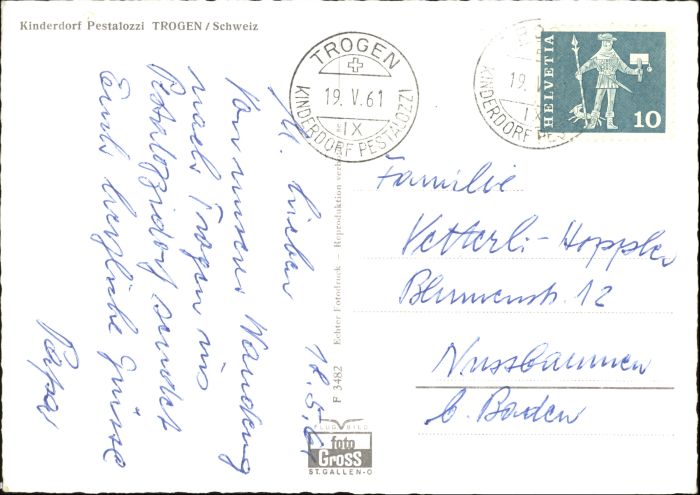 Kinderdorf Pestalozzi TROGEN / Schweiz
TROGEN
19. V. 61
IX
KINDERDORF PESTALOZZI
19. V
IX
KINDERDORF PES
HELVETIA
10
Familie
Vetterli-Hoppler
Blumenstr. 12
Nussbaumen
b. Baden
M. Lieben
18.5.61
Von unserer Wanderung
nach Trogen ins
Pestalozzidorf sendet
Euch herzliche Grüsse
Papa
F 3482 Echter Fotodruck — Reproduktion verb
FLUGBILD
foto
GROSS
ST. GALLEN-O